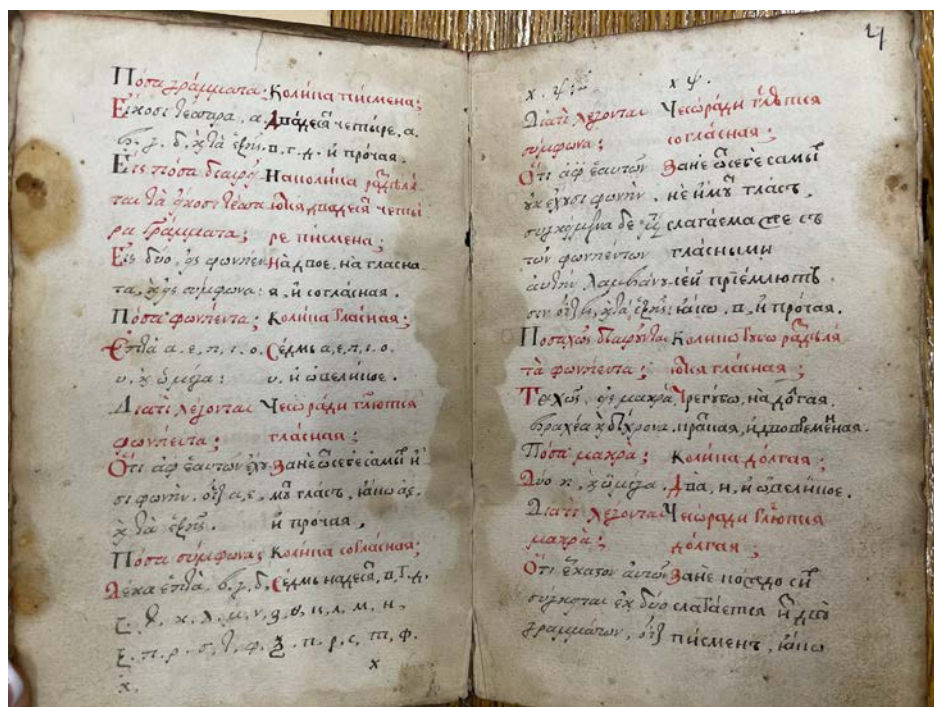 Πόσα γράμματα; Колика писмена;
Εἴκοσι τέσσαρα, α. Двадесѧ четыре, а.
β. γ. δ. ϗ τὰ ἑξῆς. в. г. д. и прочая.
Εἰς πόσα διαιροῦν На колика раздѣлѧ
ται τὰ εἴκοσι τέσσα ютсѧ двадесѧ четы
ρα γράμματα; ре писмена;
Εἰς δύο, εἰς φωνήεν на двое, на гласна
τα, ϗ εἰς σύμφωνα: я, и согласная.
Πόσα φωνήεντα; Колика гласная;
Ἑπτὰ α. ε. η. ι. ο. Седмь а, е, н, і. о
υ. ϗ ὦ μέγα: υ. и ѡ великое.
Διατί λέγονται Чесѡ ради глютсѧ
φωνήεντα; гласная;
Ὅτι ἀφ' ἑαυτῶν ἔχυ Зане ѿ себе самы и
σι φωνὴν. οἷον α, ε, мꙋ гласъ, какѡ а, е.
ϗ τὰ ἑξῆς. и прочая,
Πόσα σύμφωνα; Колика согласная;
Δέκα ἑπτὰ. β. γ. δ. Седмь надесѧ, в, г. д.
ζ. θ. κ. λ. μ. ν. з, ѳ, к, л, м, н,
ξ. π. ρ. σ, τ, φ. ѯ. п. р, с, т, ф.
χ. х
21
χ. ψ: х ѱ.
Διατί λέγονται Чесѡ ради глютсѧ
σύμφωνα; согласная;
Ὅτι ἀφ' ἑαυτῶν Зане ѿ себе самы
ὐκ ἔχυσι φωνὴν. не имꙋ гласъ,
δε слагаема же съ
τῶν φωνηέντων гласными
αὐτὴν λαμβάνυ сей пріемлютъ.
σιν οἷον, ϗ τὰ ἑξῆς: какѡ. в, и прочая.
Ποσαχῶς διαιρῦνται Колико губѡ раздѣлѧ
τὰ φωνήεντα; ютсѧ гласная;
Τριχῶς. εἰς μακρὰ, Трегубѡ, на долгая.
βραχέα ϗ δίχρονα. краткая, и двовременная.
Πόσα μακρὰ; Колика долгая;
Δύο η, ϗ ὦ μέγα. Два, н, и ѡ великое.
Διατί λέγονται Чесѡ ради глютсѧ
μακρὰ; долгая;
Ὅτι ἕκαστον αὐτῶν Зане
σύγκειται ἐκ δύο слагается и двѹ
γραμμάτων, οἷον писменъ, какѡ